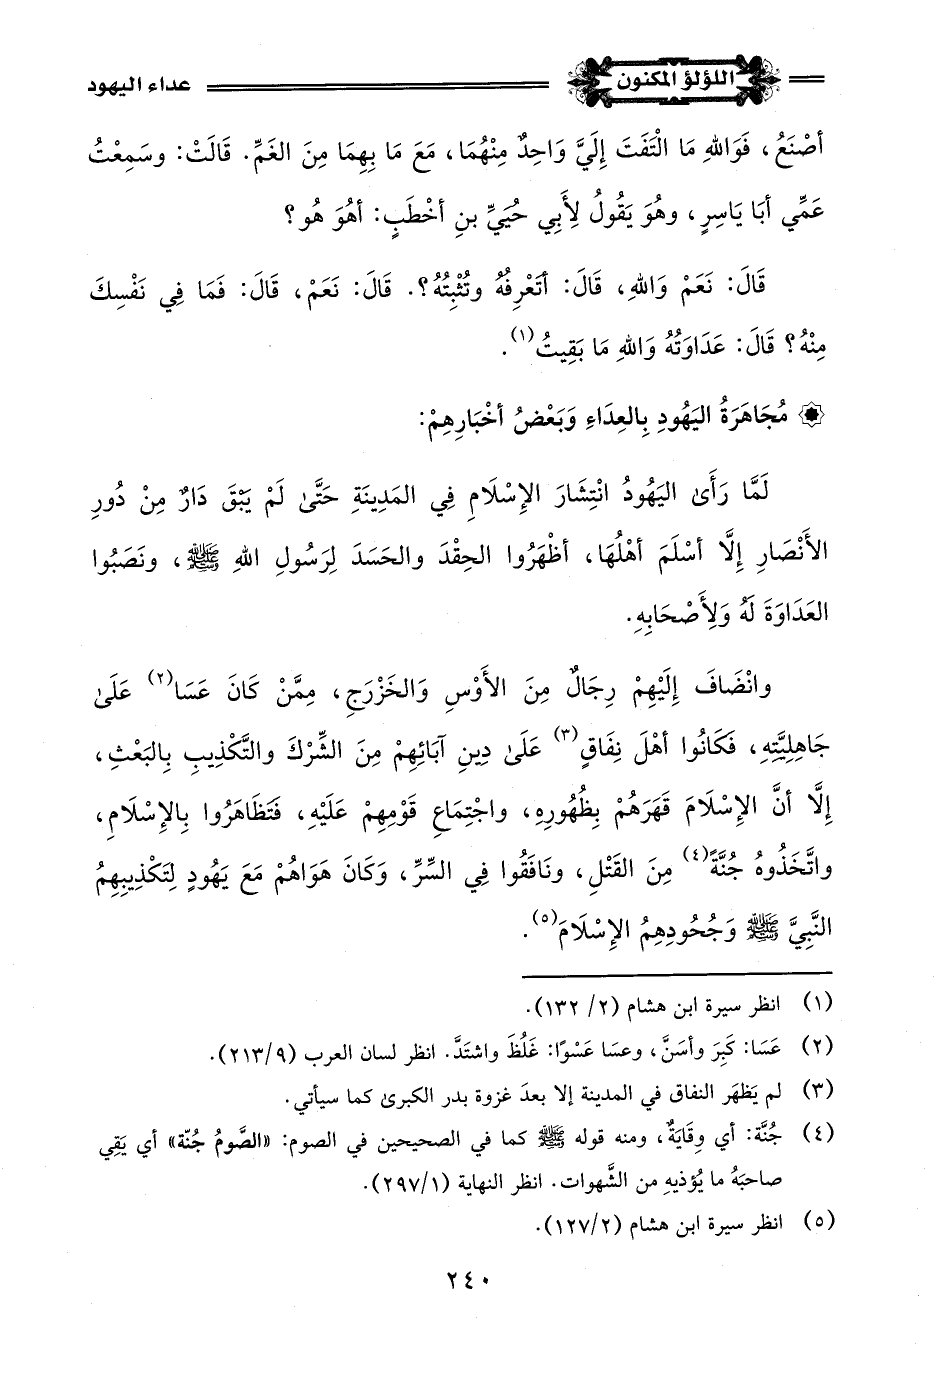 اللؤلؤ المكنون
عداء اليهود
أصْنَعُ، فَوَاللهِ مَا الْتَفَتَ إِلَيَّ وَاحِدٌ مِنْهُمَا، مَعَ مَا بِهِمَا مِنَ الغَمِّ. قَالَتْ: وسَمِعْتُ
عَمِّي أبَا يَاسِرٍ، وهُوَ يَقُولُ لِأَبِي حُيَيِّ بنِ أخْطَبٍ: أهُوَ هُو؟
قَالَ: نَعَمْ وَاللهِ، قَالَ: أتَعْرِفُهُ وتُثْبِتُهُ؟. قَالَ: نَعَمْ، قَالَ: فَمَا فِي نَفْسِكَ
مِنْهُ؟ قَالَ: عَدَاوَتُهُ وَاللهِ مَا بَقِيتُ(١).
مُجَاهَرَةُ اليَهُودِ بِالعِدَاءِ وَبَعْضُ أخْبَارِهِمْ:
لَمَّا رَأَىٰ اليَهُودُ انْتِشَارَ الإِسْلَامِ فِي المَدِينَةِ حَتَّىٰ لَمْ يَبْقَ دَارٌ مِنْ دُورِ
الأَنْصَارِ إِلَّا أسْلَمَ أهْلُهَا، أظْهَرُوا الحِقْدَ والحَسَدَ لِرَسُولِ اللهِ ﷺ، ونَصَبُوا
العَدَاوَةَ لَهُ وَلِأَصْحَابِهِ.
وانْضَافَ إِلَيْهِمْ رِجَالٌ مِنَ الأَوْسِ وَالخَزْرَجِ، مِمَّنْ كَانَ عَسَا(٢) عَلَىٰ
جَاهِلِيَّتِهِ، فَكَانُوا أهْلَ نِفَاقٍ(٣) عَلَىٰ دِينِ آبَائِهِمْ مِنَ الشِّرْكَ والتَّكْذِيبِ بِالبَعْثِ،
إلَّا أنَّ الإِسْلَامَ قَهَرَهُمْ بِظُهُورِهِ، واجْتِمَاعِ قَوْمِهِمْ عَلَيْهِ، فَتَظَاهَرُوا بِالإِسْلَامِ،
واتَّخَذُوهُ جُنَّةً(٤) مِنَ القَتْلِ، ونَافَقُوا فِي السِّرِّ، وَكَانَ هَوَاهُمْ مَعَ يَهُودٍ لِتَكْذِيبِهِمُ
النَّبِيَّ ﷺ وَجُحُودِهِمُ الإِسْلَامَ(٥).
(١) انظر سيرة ابن هشام (٢/ ١٣٢).
(٢) عَسَا: كَبِرَ وأسَنَّ، وعسَا عَسْوًا: غَلُظَ واشتَدَّ. انظر لسان العرب (٢١٣/٩).
(٣) لم يَظهَر النفاق في المدينة إلا بعدَ غزوة بدر الكبرىٰ كما سيأتي.
(٤) جُنَّة: أي وِقَايَةٌ، ومنه قوله ﷺ كما في الصحيحين في الصوم: «الصَّومُ جُنّة» أي يَقِي
صاحبَهُ ما يُؤذيهِ من الشَّهوات. انظر النهاية (٢٩٧/١).
(٥) انظر سيرة ابن هشام (١٢٧/٢).
٢٤٠